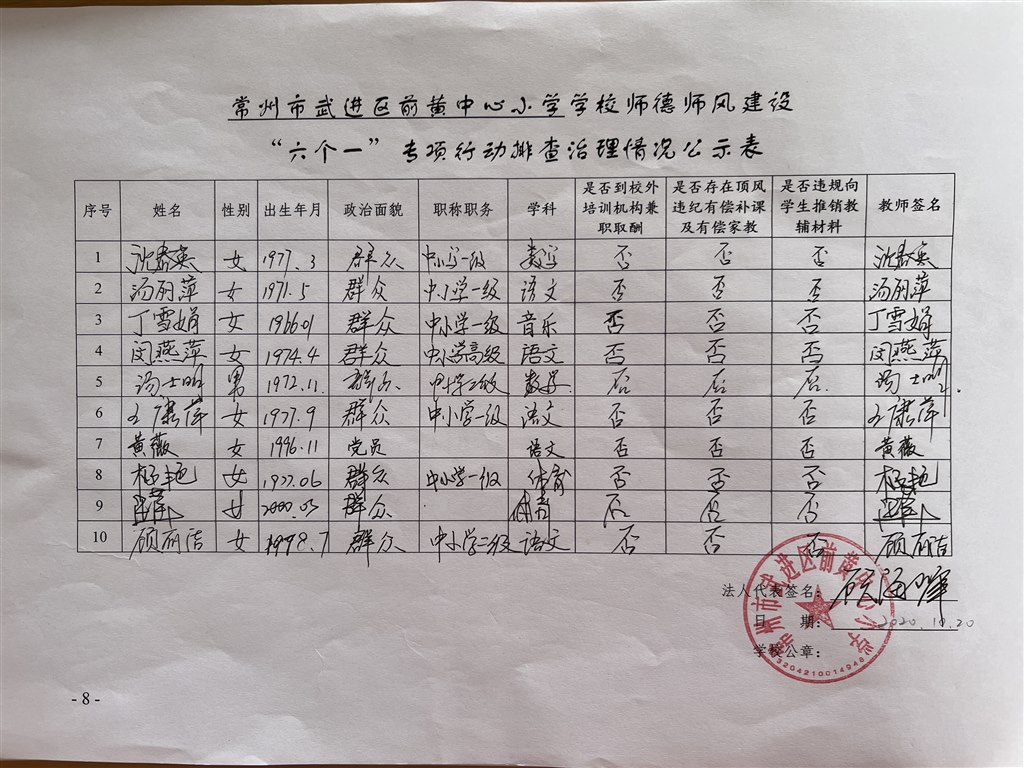 常州市武进区前黄中心小学学校师德师风建设
“六个一”专项行动排查治理情况公示表
序号 姓名 性别 出生年月 政治面貌 职称职务 学科 是否到校外培训机构兼职取酬 是否存在顶风违纪有偿补课及有偿家教 是否违规向学生推销教辅材料 教师签名
1 沈春英 女 1977.3 群众 中小学一级 数学 否 否 否 沈春英
2 汤丽萍 女 1971.5 群众 中小学一级 语文 否 否 否 汤丽萍
3 丁雪娟 女 1966.01 群众 中小学一级 音乐 否 否 否 丁雪娟
4 闵燕萍 女 1974.4 群众 中小学高级 语文 否 否 否 闵燕萍
5 汤士明 男 1972.11. 群众 中小学二级 数学 否 否 否 汤士明
6 王康萍 女 1977.9 群众 中小学一级 语文 否 否 否 王康萍
7 黄薇 女 1996.11 党员 语文 否 否 否 黄薇
8 杨艳 女 1977.06 群众 中小学一级 体育 否 否 否 杨艳
9 女 2000.05 群众 体育 否 否 否
10 顾丽洁 女 1998.7 群众 中小学二级 语文 否 否 否 顾丽洁
法人代表签名: 顾海晖
日 期: 2020.10.20
学校公章:
常州市武进区前黄中心小学
3204210014946
- 8 -